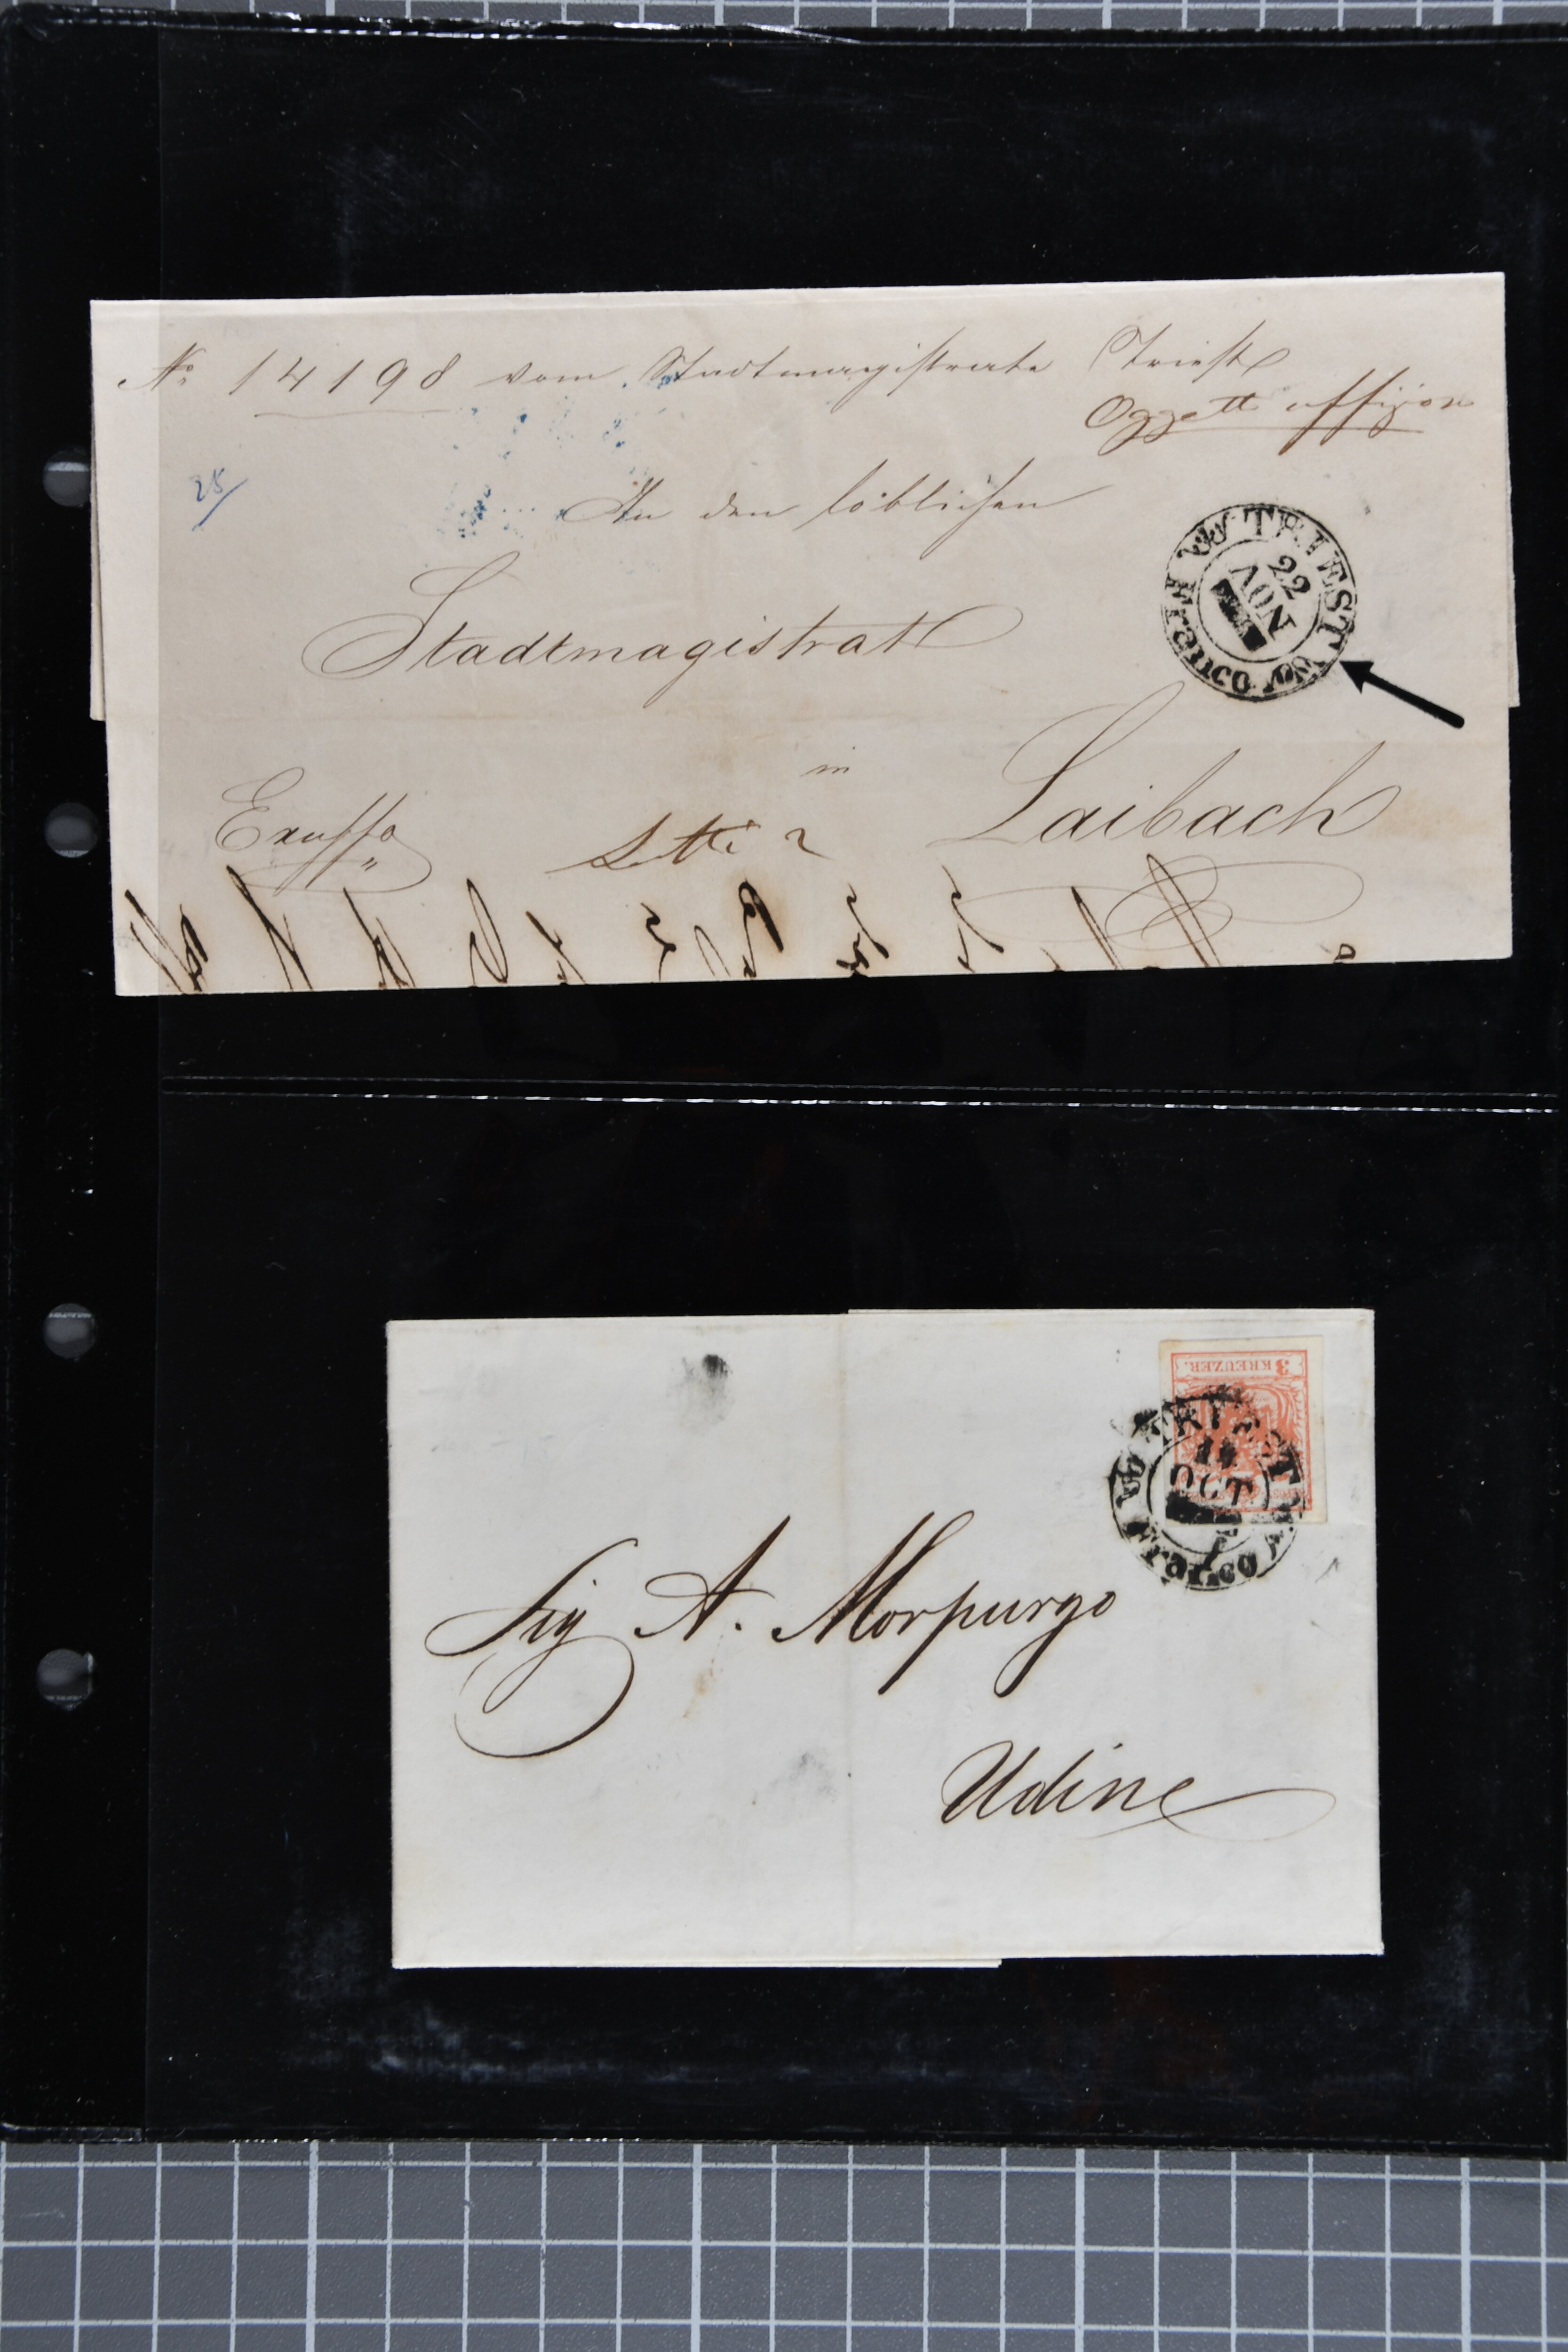 No. 14198 vom Stadtmagistrate Triest
Oggetti uffiziosi
25/
An den löblichen
Stadtmagistrat
TRIEST
22
NOV
Franco
in
Laibach
Exuffo
3 KREUZER.
TRIEST
11
OCT
Franco
Sig A. Morpurgo
Udine